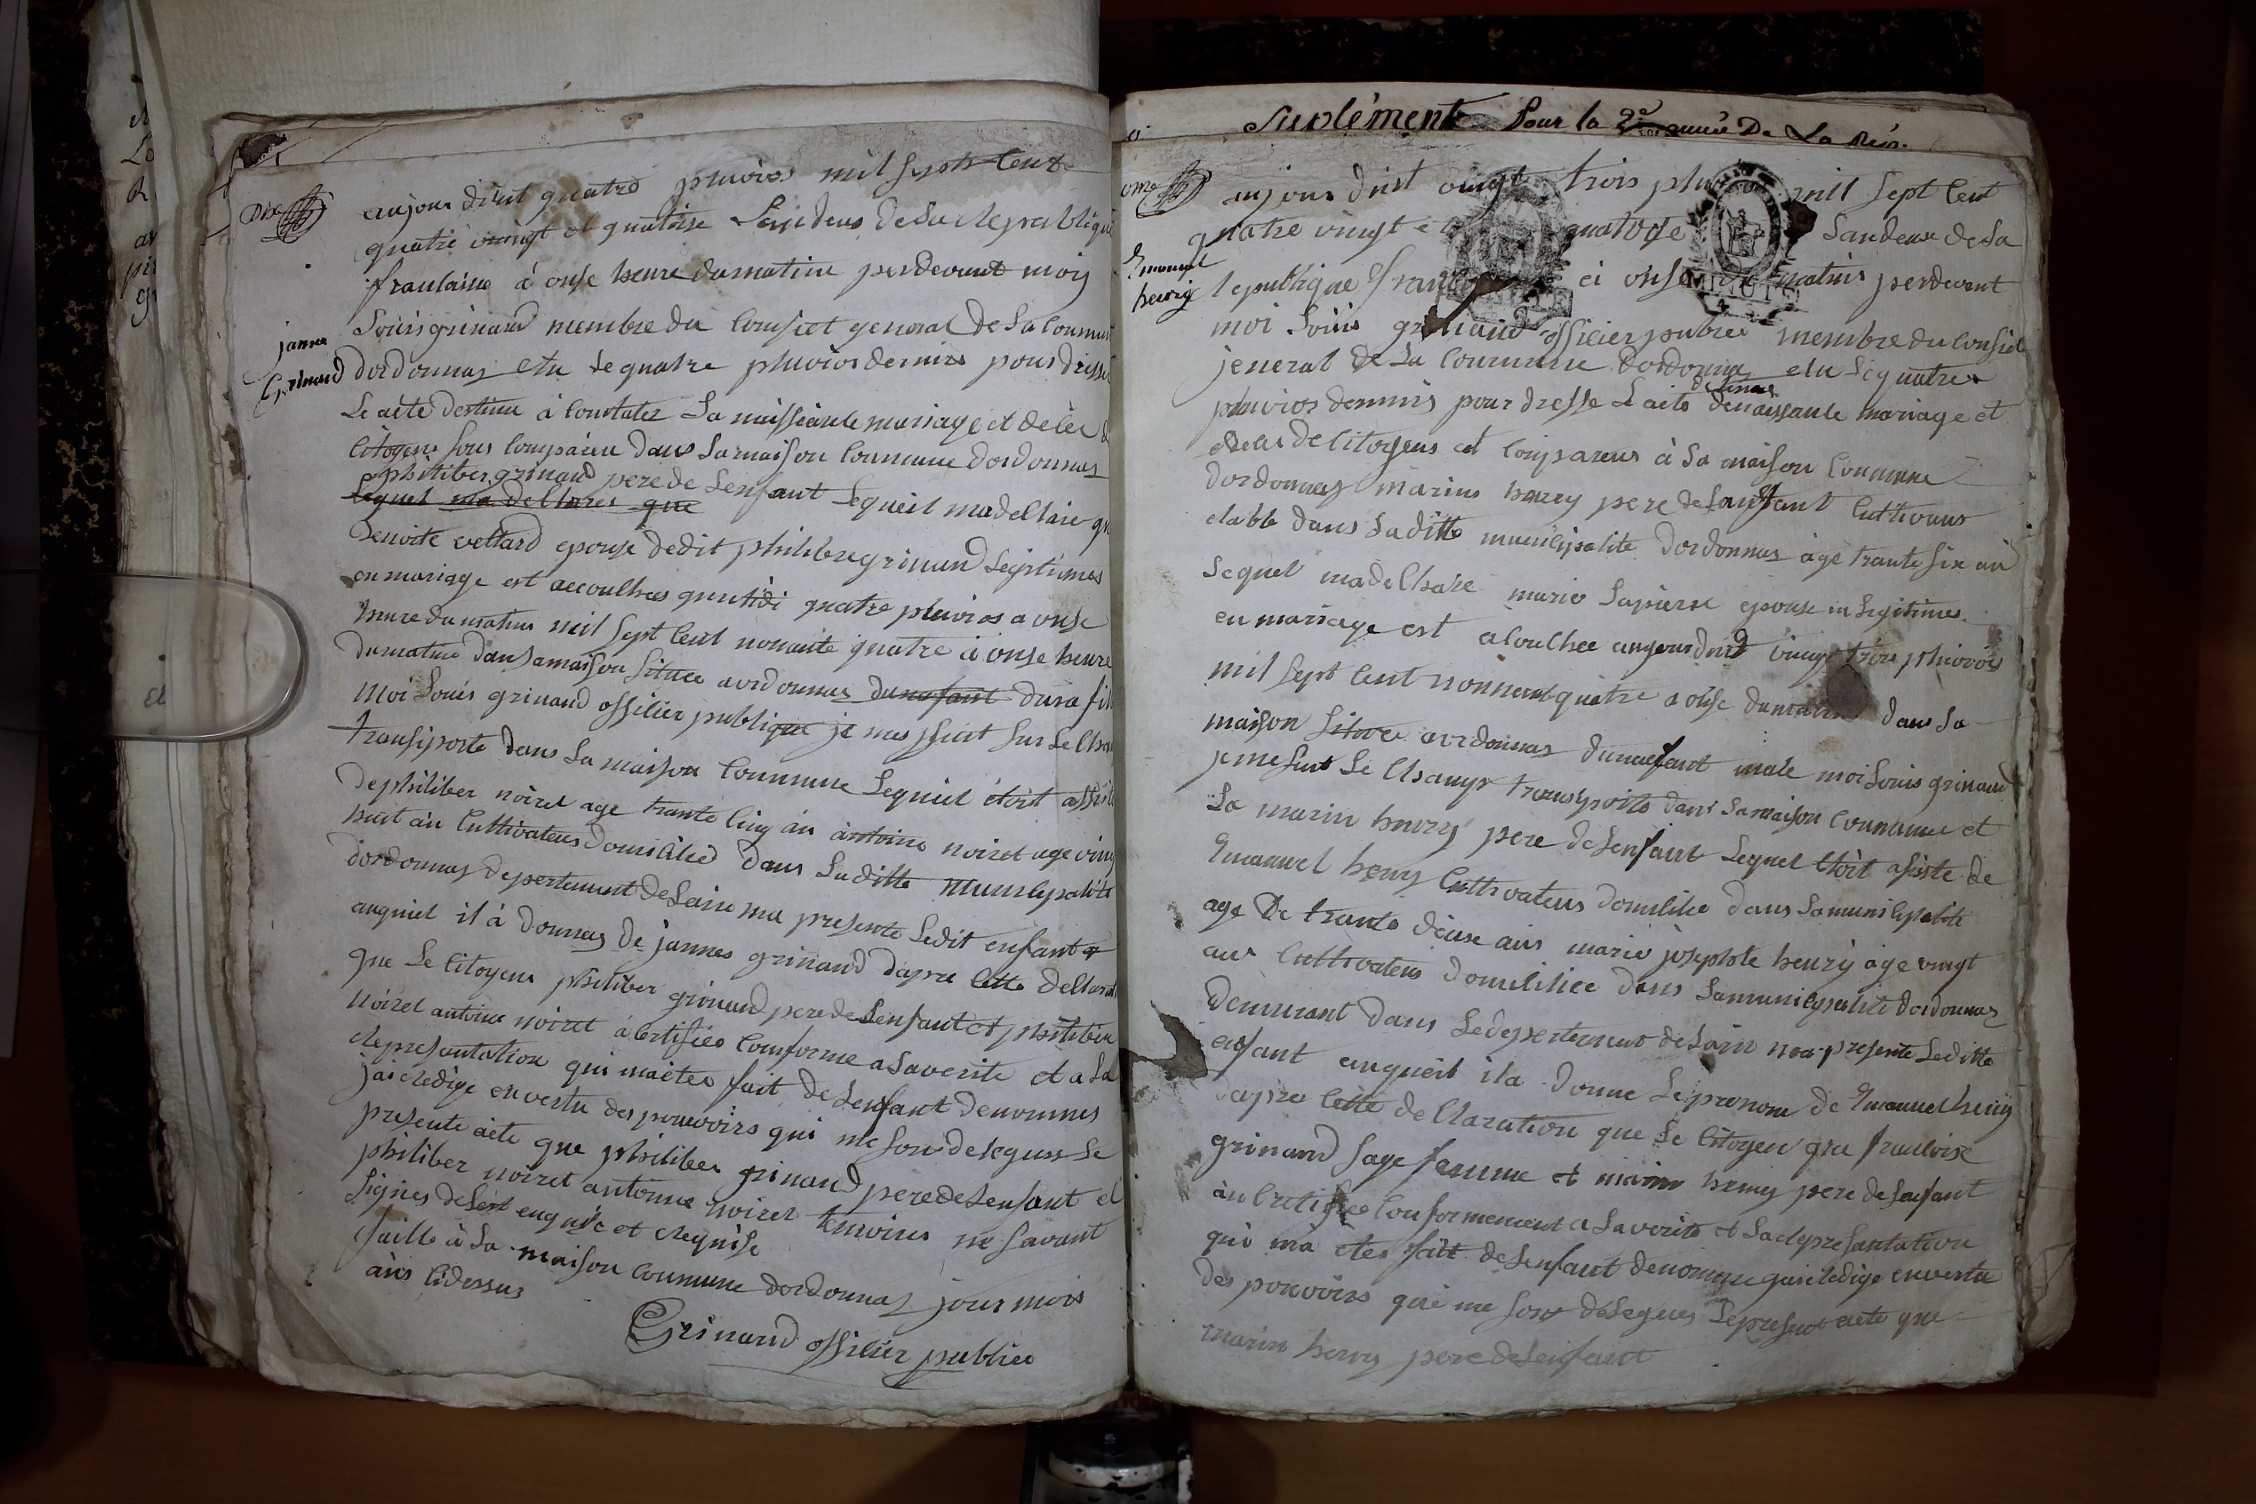 Dix
aujour diut quatre pluvios mil septs Cent
quatre vingt et quatorse Landeus de La Republique
francaise à onse heure dumatin perdevant moy
Louis grinand membre du Conseil general de La Commun
janne
Grinand
dordonnas elu le quatre pluvios dernier pour dresse
Le acte destinu à Constater La naissance mariage et décès de
Citoyens sous Comparu dans La maison Commune dordonnas
philiber grinand pere de Lenfant Lequeil ma declaire que
Lequel ma declarer que
Benoite vettard epouse dedit philibregrinand Legitimes
en mariage est accouchee quutidi quatre pluvios a onse
heure dumatin mil sept Cent nonante quatre à onse heure
dumatin dans Samaison Situee aordonnas dunefant duna fil
Moi Louis grinand officier publique je mes suit sur le Cham
transporté dans La maison Commune Lequiel étoit assist
dephiliber noiret age trante Cinq an antoine noiret age vint
huit an Cultivateurs domicilied dans Laditte municipalité
dordonnas depertement de Lain ma presente Ledit enfant
auquiel il à donnas de jannes grinand dapre Cette declarat
que Le Citoyens philiber grinand pere de Lenfant et philiber
Noiret antoine noiret a Certifiee Comforme a Laverite et a La
representation qui maetes fait de Lenfant denommes
jai redige envertu des pouvoirs qui me son delegues Le
presente acte que philiber grinand pere de Lenfant et
philiber noiret antoine noiret temoins ne Savant
Signes de Cest enquie et requise
faille à La maison Commune dordonnas jour mois
ans Cidessus
Grinand officier publice
Suplément Pour la 2e année De La Rép.
onse
aujour duit vingt trois plu mil sept Cent
quatre vingt quatorse Landeux de La
Emanuel
henrij
republique franc ei onse matin perdevant
moi Louis grinand officier public membre du Conseil
jeneral de La Commune dordonnas elu Lequatre
pluvios dernies pour dresse Lacte denaissance mariage et
deces de Citoyens est Comparus à La maison Commune
dordonnas marin henry pere de Lanfant Cultivans
etable dans Laditte municipalite dordonnas age trante six an
Lequel madeClare marie Lapierre epouse in Legitimes
en mariage est acouchee aujourduit vingt trois pluvois
mil sept Cent nonnent quatre a onse dumatin dans La
maison Situee aordonnas dunenfant male moi Louis grinand
jemesuis Le Champ transporte dans Lamaison Commune et
La marin henry pere de Lenfant Lequel étoit assiste de
Emanuel henry Cultivateurs domicilie dans Lamunicipalité
age De trante deuse ans marie josephte henry age vingt
ans Cultivateus domiciliee dans Lamunicipalité dordonnas
Demurant dans Ledepertement de Lain ma presente Leditte
enfant auqueil ila donne Leprenom de Emanuel henry
dapre Cette declaration que Le Citoyen que francoise
grinand sage femme et marin henry pere de Lanfant
àn Certifiee Conformement a Laverite et Lareprésantation
qui m'a etes fait de Lenfant denommes jai redige envertue
des pouvoirs que me sont delegues Lepresent acte que
marin henry pere de Lenfant